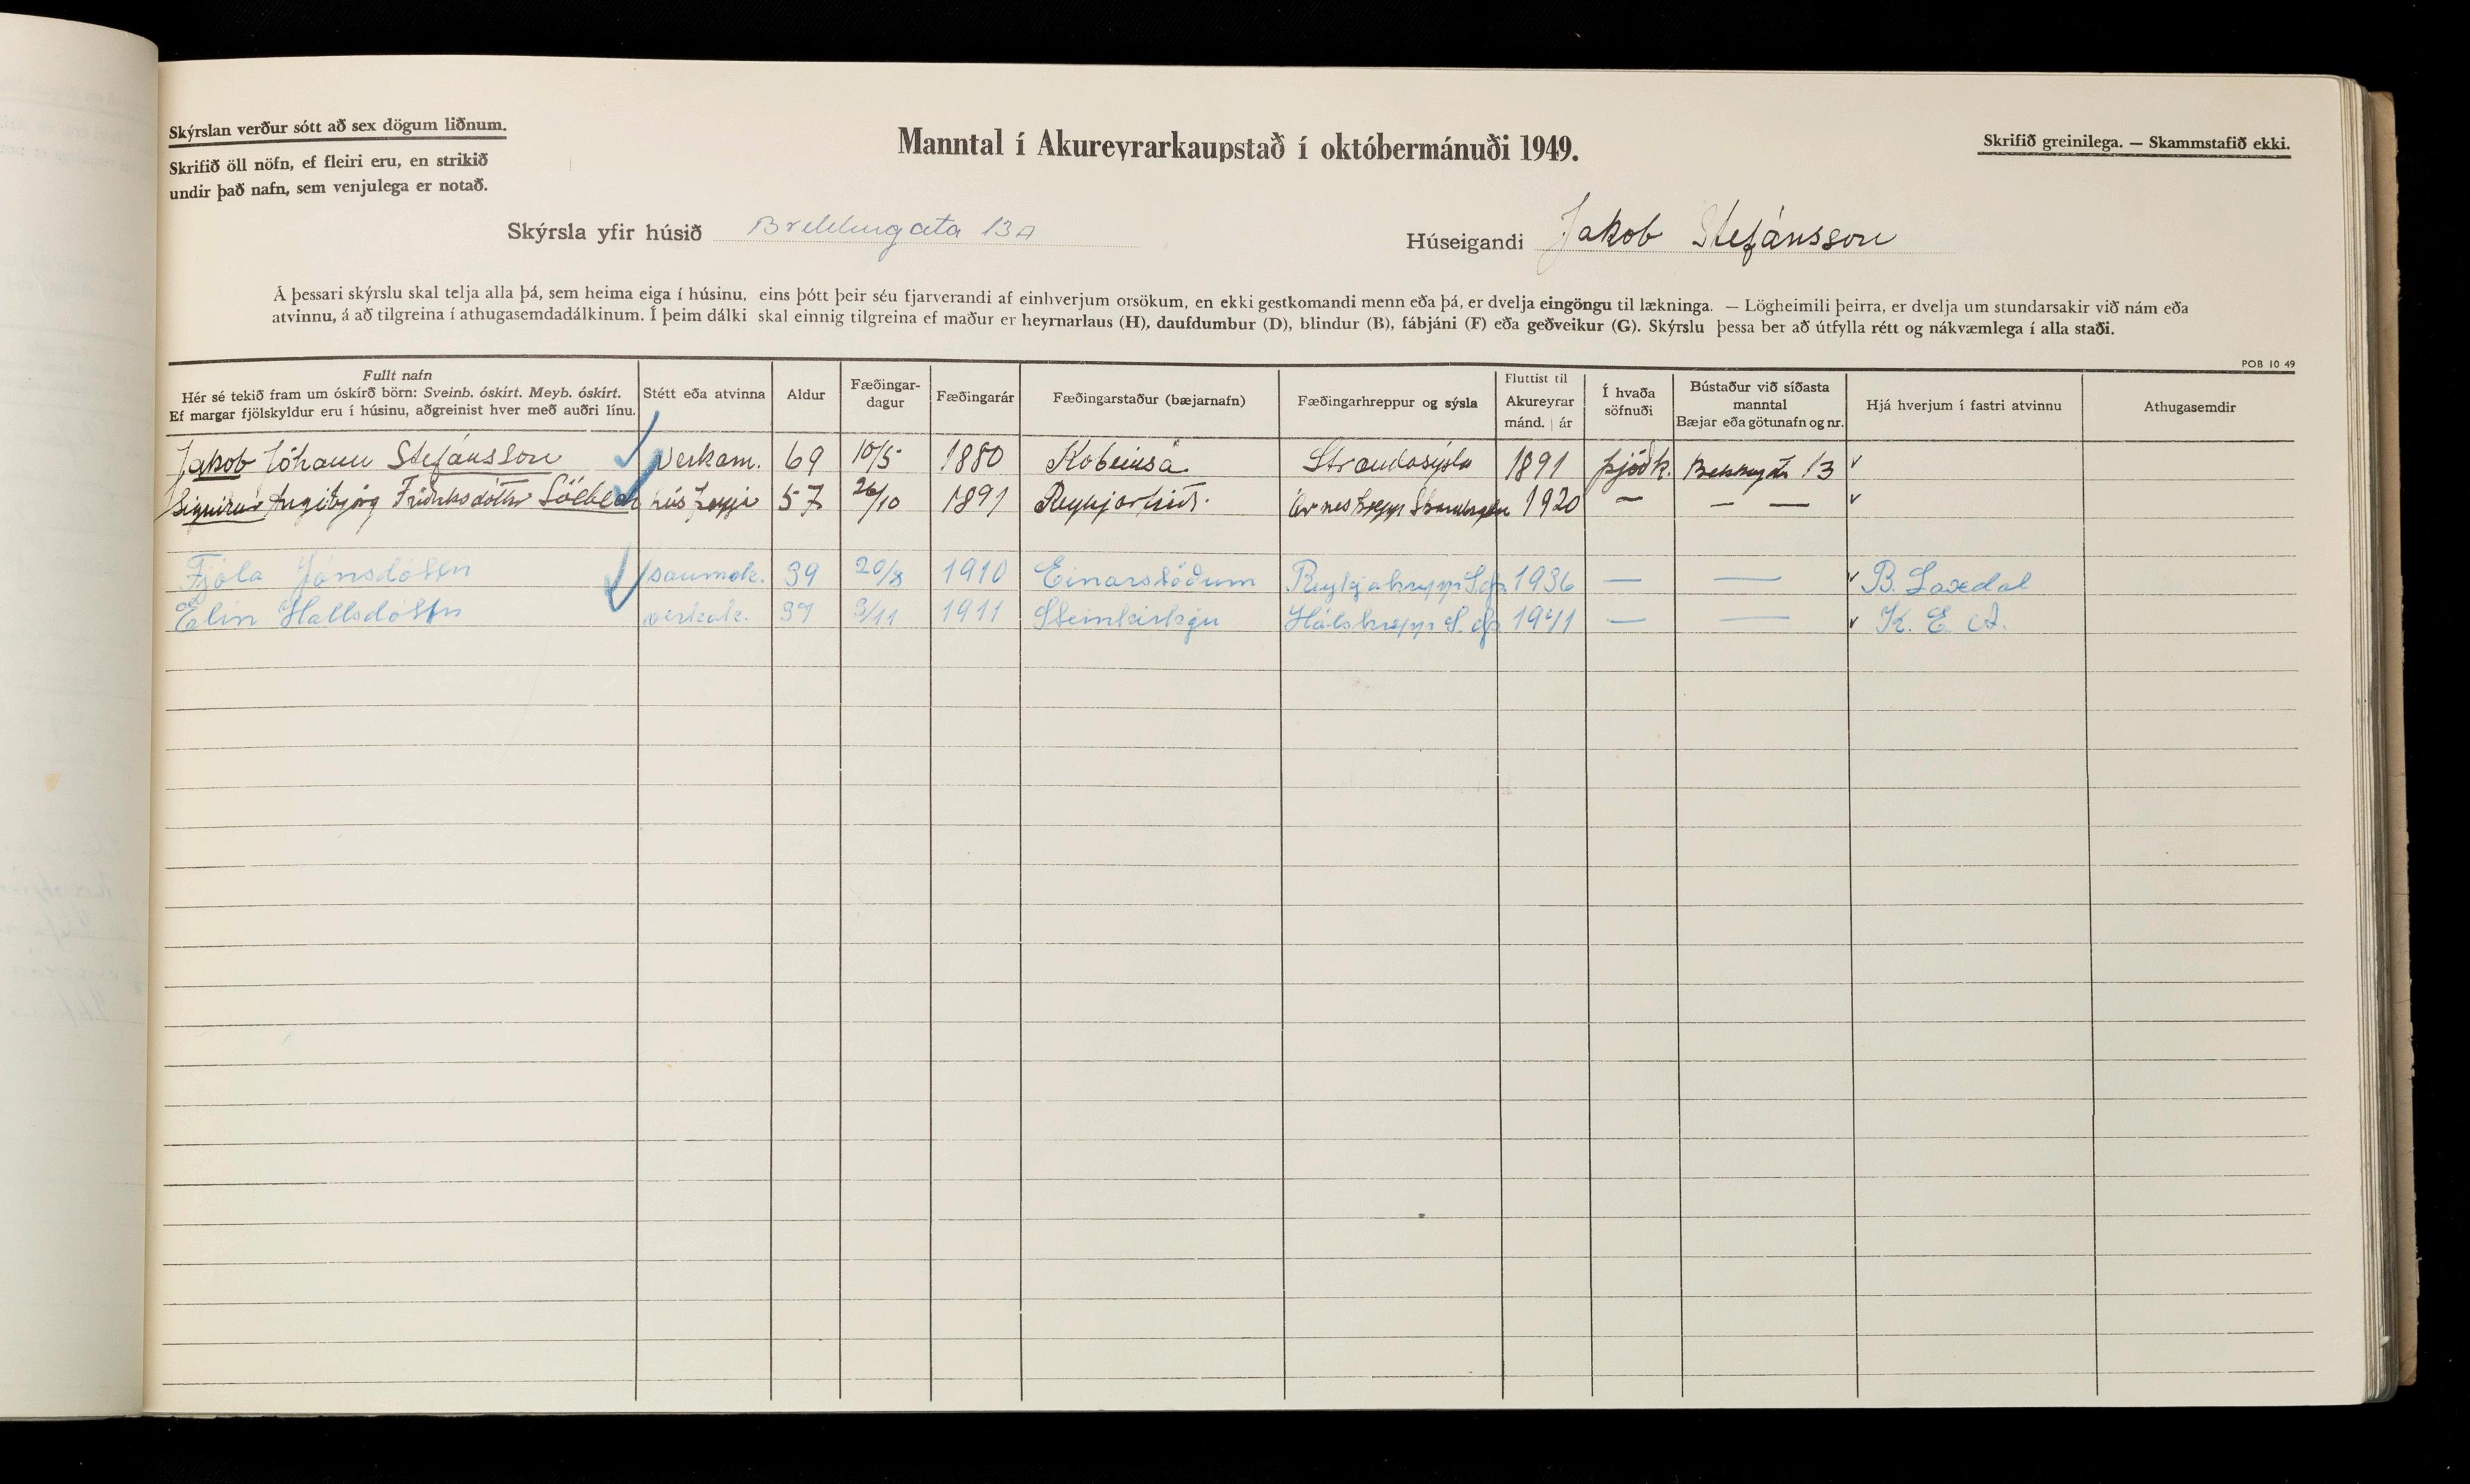 Skýrslan verður sótt að sex dögum liðnum.
Skrifið öll nöfn, ef fleiri eru, en strikið
undir það nafn, sem venjulega er notað.
Manntal í Akureyrarkaupstað í októbermánuði 1949.
Skrifið greinilega. — Skammstafið ekki.
Skýrsla yfir húsið Brekkugata 13A
Húseigandi Jakob Stefánsson
Á þessari skýrslu skal telja alla þá, sem heima eiga í húsinu, eins þótt þeir séu fjarverandi af einhverjum orsökum, en ekki gestkomandi menn eða þá, er dvelja eingöngu til lækninga. — Lögheimili þeirra, er dvelja um stundarsakir við nám eða
atvinnu, á að tilgreina í athugasemdadálkinum. Í þeim dálki skal einnig tilgreina ef maður er heyrnarlaus (H), daufdumbur (D), blindur (B), fábjáni (F) eða geðveikur (G). Skýrslu þessa ber að útfylla rétt og nákvæmlega í alla staði.
POB 10 49
Fullt nafn
Hér sé tekið fram um óskírð börn: Sveinb. óskírt. Meyb. óskírt.
Ef margar fjölskyldur eru í húsinu, aðgreinist hver með auðri línu.
Stétt eða atvinna
Aldur
Fæðingar-
dagur
Fæðingarár
Fæðingarstaður (bæjarnafn)
Fæðingarhreppur og sýsla
Fluttist til
Akureyrar
mánd. | ár
Í hvaða
söfnuði
Bústaður við síðasta
manntal
Bæjar eða götunafn og nr.
Hjá hverjum í fastri atvinnu
Athugasemdir
Jakob Jóhann Stefánsson Verkam. 69 10/5 1880 Kolbeinsá Strandasýsla 1891 þjóðk. Brekkugata 13
Ingibjörg Friðriksdóttir Söebech 57 26/10 1891 Reykjarfirði. 1920 — — —
Fjóla Jónsdóttir saumak. 39 20/8 1910 Einarsstöðum Reykjahrepp S. þ. 1936 — — B. Laxdal
Elín Hallsdóttir verkak. 37 3/11 1911 Steinkirkju Hálshrepp S. þ. 1941 — — K. E. A.